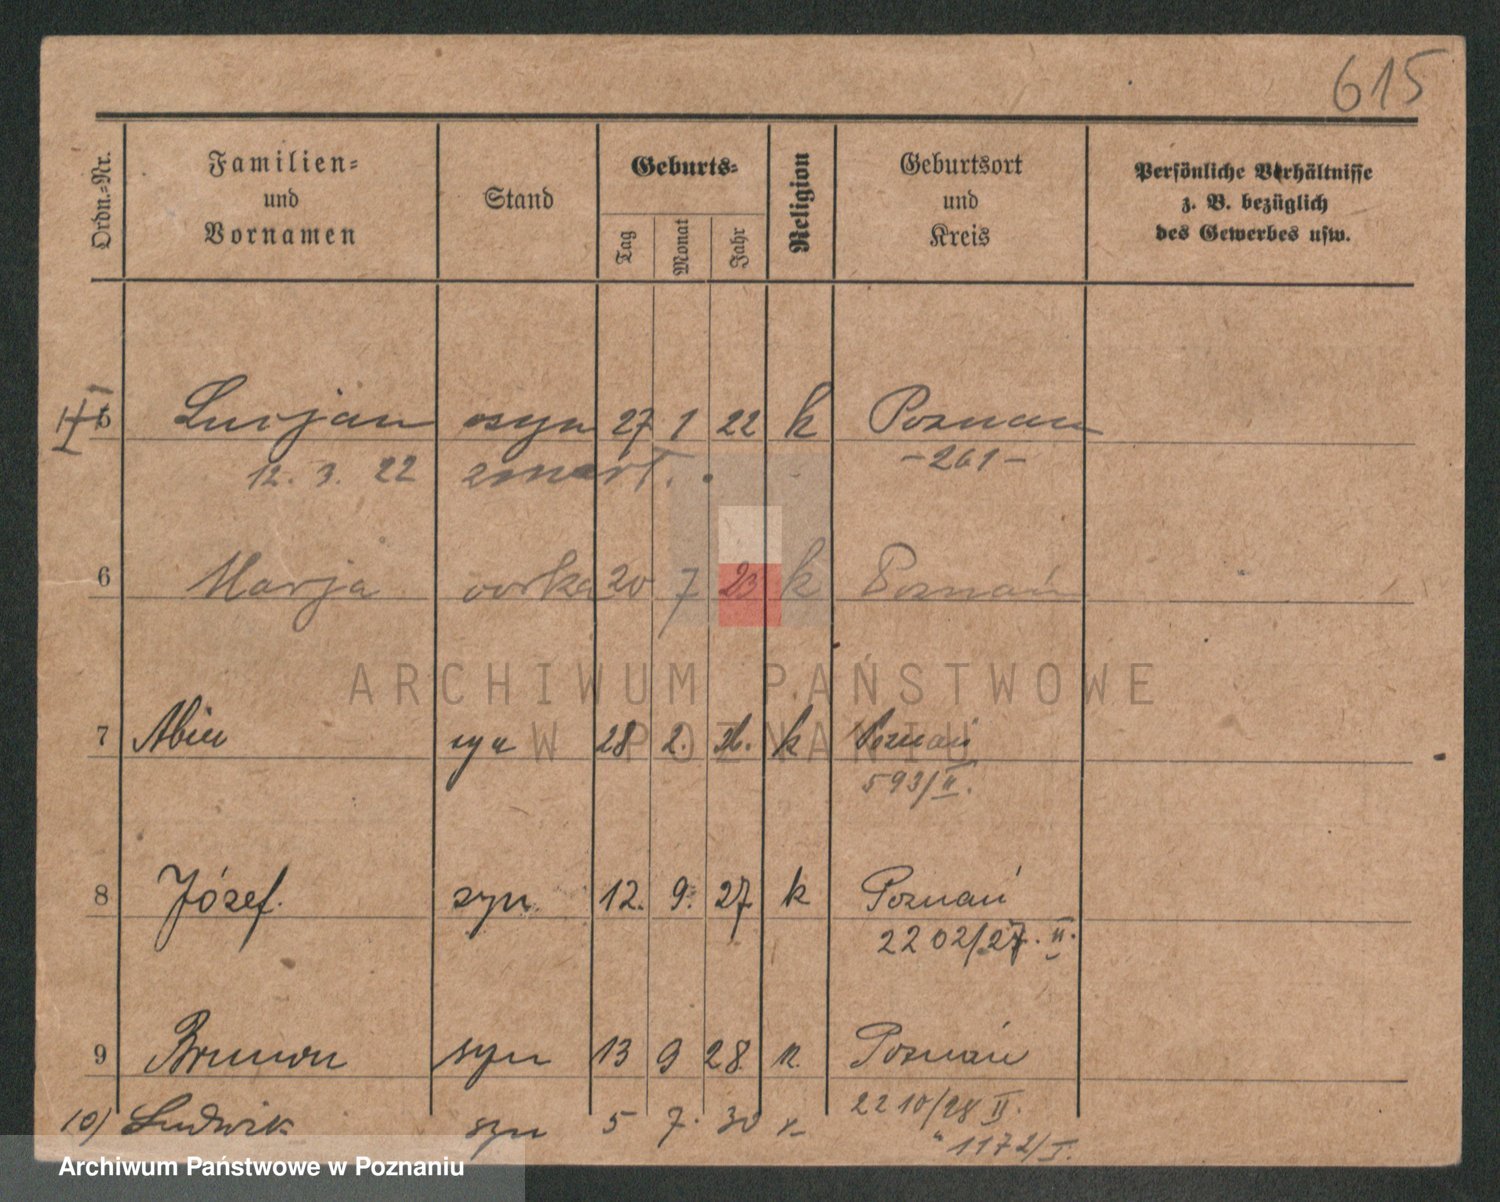 615
Ordn.=Nr.
Familien=
und
Vornamen
Stand
Geburts=
Tag
Monat
Jahr
Religion
Geburtsort
und
Kreis
Persönliche Verhältnisse
z. B. bezüglich
des Gewerbes usw.
5 Lucjan syn 27 1 22 k Poznan
12. 3. 22 zmarł. -261-
6 Marja corka 20 7 23 k Poznań
7 syn 28 2. k Poznań
593/II.
8 Józef. syn 12. 9. 27 k Poznań
2202/27. II.
9 Brunon syn 13 9 28. k. Poznań
2210/28 II.
10) Ludwik syn 5 7. 30 k
" 1172/I.
ARCHIWUM PAŃSTWOWE
W POZNANIU
Archiwum Państwowe w Poznaniu